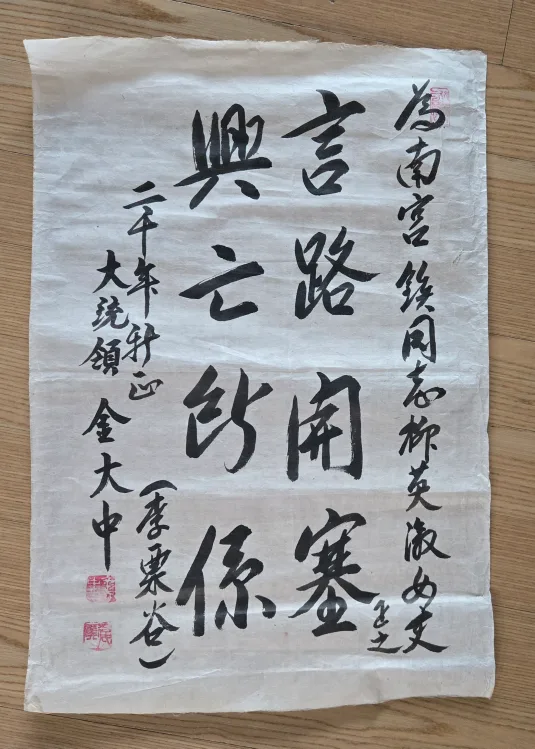 為南宮鎭同志柳英淑女史
正之
言路開塞
興亡所係
(李栗谷)
二千年新正
大統領 金大中